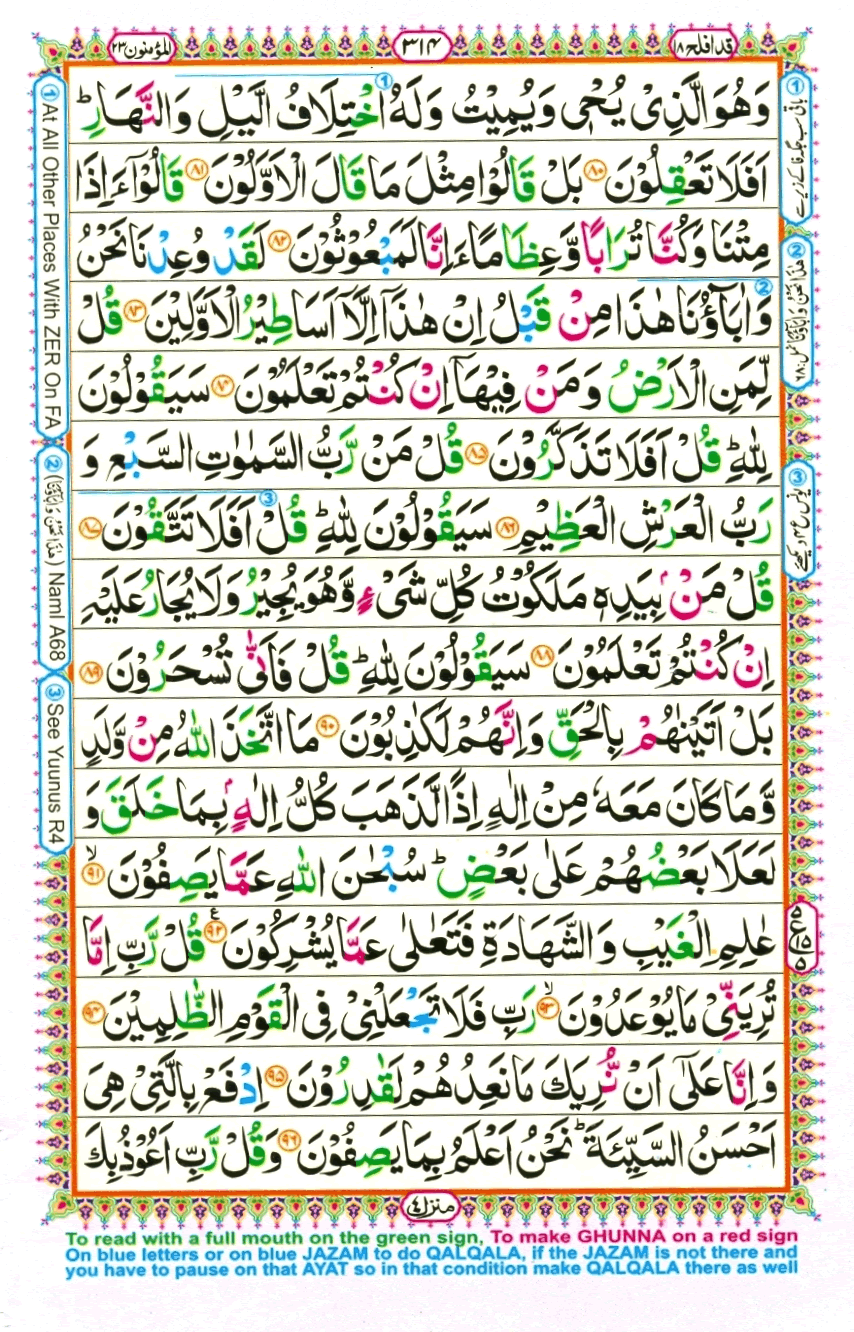 قد افلح ۱۸
۳۱۴
المؤمنون ۲۳
وَهُوَ الَّذِیْ یُحْیٖ وَیُمِیْتُ وَلَهُ اخْتِلَافُ الَّیْلِ وَالنَّهَارِ ؕ
اَفَلَا تَعْقِلُوْنَ ﴿۸۰﴾ بَلْ قَالُوْا مِثْلَ مَا قَالَ الْاَوَّلُوْنَ ﴿۸۱﴾ قَالُوْۤا ءَاِذَا
مِتْنَا وَكُنَّا تُرَابًا وَّعِظَامًا ءَاِنَّا لَمَبْعُوْثُوْنَ ﴿۸۲﴾ لَقَدْ وُعِدْنَا نَحْنُ
وَاٰبَآؤُنَا هٰذَا مِنْ قَبْلُ اِنْ هٰذَاۤ اِلَّاۤ اَسَاطِیْرُ الْاَوَّلِیْنَ ﴿۸۳﴾ قُلْ
لِّمَنِ الْاَرْضُ وَمَنْ فِیْهَاۤ اِنْ كُنْتُمْ تَعْلَمُوْنَ ﴿۸۴﴾ سَیَقُوْلُوْنَ
لِلّٰهِ ؕ قُلْ اَفَلَا تَذَكَّرُوْنَ ﴿۸۵﴾ قُلْ مَنْ رَّبُّ السَّمٰوٰتِ السَّبْعِ وَ
رَبُّ الْعَرْشِ الْعَظِیْمِ ﴿۸۶﴾ سَیَقُوْلُوْنَ لِلّٰهِ ؕ قُلْ اَفَلَا تَتَّقُوْنَ ﴿۸۷﴾
قُلْ مَنْۢ بِیَدِهٖ مَلَكُوْتُ كُلِّ شَیْءٍ وَّهُوَ یُجِیْرُ وَلَا یُجَارُ عَلَیْهِ
اِنْ كُنْتُمْ تَعْلَمُوْنَ ﴿۸۸﴾ سَیَقُوْلُوْنَ لِلّٰهِ ؕ قُلْ فَاَنّٰی تُسْحَرُوْنَ ﴿۸۹﴾
بَلْ اَتَیْنٰهُمْ بِالْحَقِّ وَاِنَّهُمْ لَكٰذِبُوْنَ ﴿۹۰﴾ مَا اتَّخَذَ اللّٰهُ مِنْ وَّلَدٍ
وَّمَا كَانَ مَعَهٗ مِنْ اِلٰهٍ اِذًا لَّذَهَبَ كُلُّ اِلٰهٍۭ بِمَا خَلَقَ وَ
لَعَلَا بَعْضُهُمْ عَلٰی بَعْضٍ ؕ سُبْحٰنَ اللّٰهِ عَمَّا یَصِفُوْنَ ﴿ۙ۹۱﴾
عٰلِمِ الْغَیْبِ وَالشَّهَادَةِ فَتَعٰلٰی عَمَّا یُشْرِكُوْنَ ﴿۹۲﴾ قُلْ رَّبِّ اِمَّا
تُرِیَنِّیْ مَا یُوْعَدُوْنَ ﴿ۙ۹۳﴾ رَبِّ فَلَا تَجْعَلْنِیْ فِی الْقَوْمِ الظّٰلِمِیْنَ ﴿۹۴﴾
وَاِنَّا عَلٰۤی اَنْ نُّرِیَكَ مَا نَعِدُهُمْ لَقٰدِرُوْنَ ﴿۹۵﴾ اِدْفَعْ بِالَّتِیْ هِیَ
اَحْسَنُ السَّیِّئَةَ ؕ نَحْنُ اَعْلَمُ بِمَا یَصِفُوْنَ ﴿۹۶﴾ وَقُلْ رَّبِّ اَعُوْذُ بِكَ
منزل ۴
① At All Other Places With ZER On FA
② (هٰذَا نَحْنُ وَاٰبَآؤُنَا) Naml A68
③ See Yuunus R4
To read with a full mouth on the green sign, To make GHUNNA on a red sign
On blue letters or on blue JAZAM to do QALQALA, if the JAZAM is not there and
you have to pause on that AYAT so in that condition make QALQALA there as well